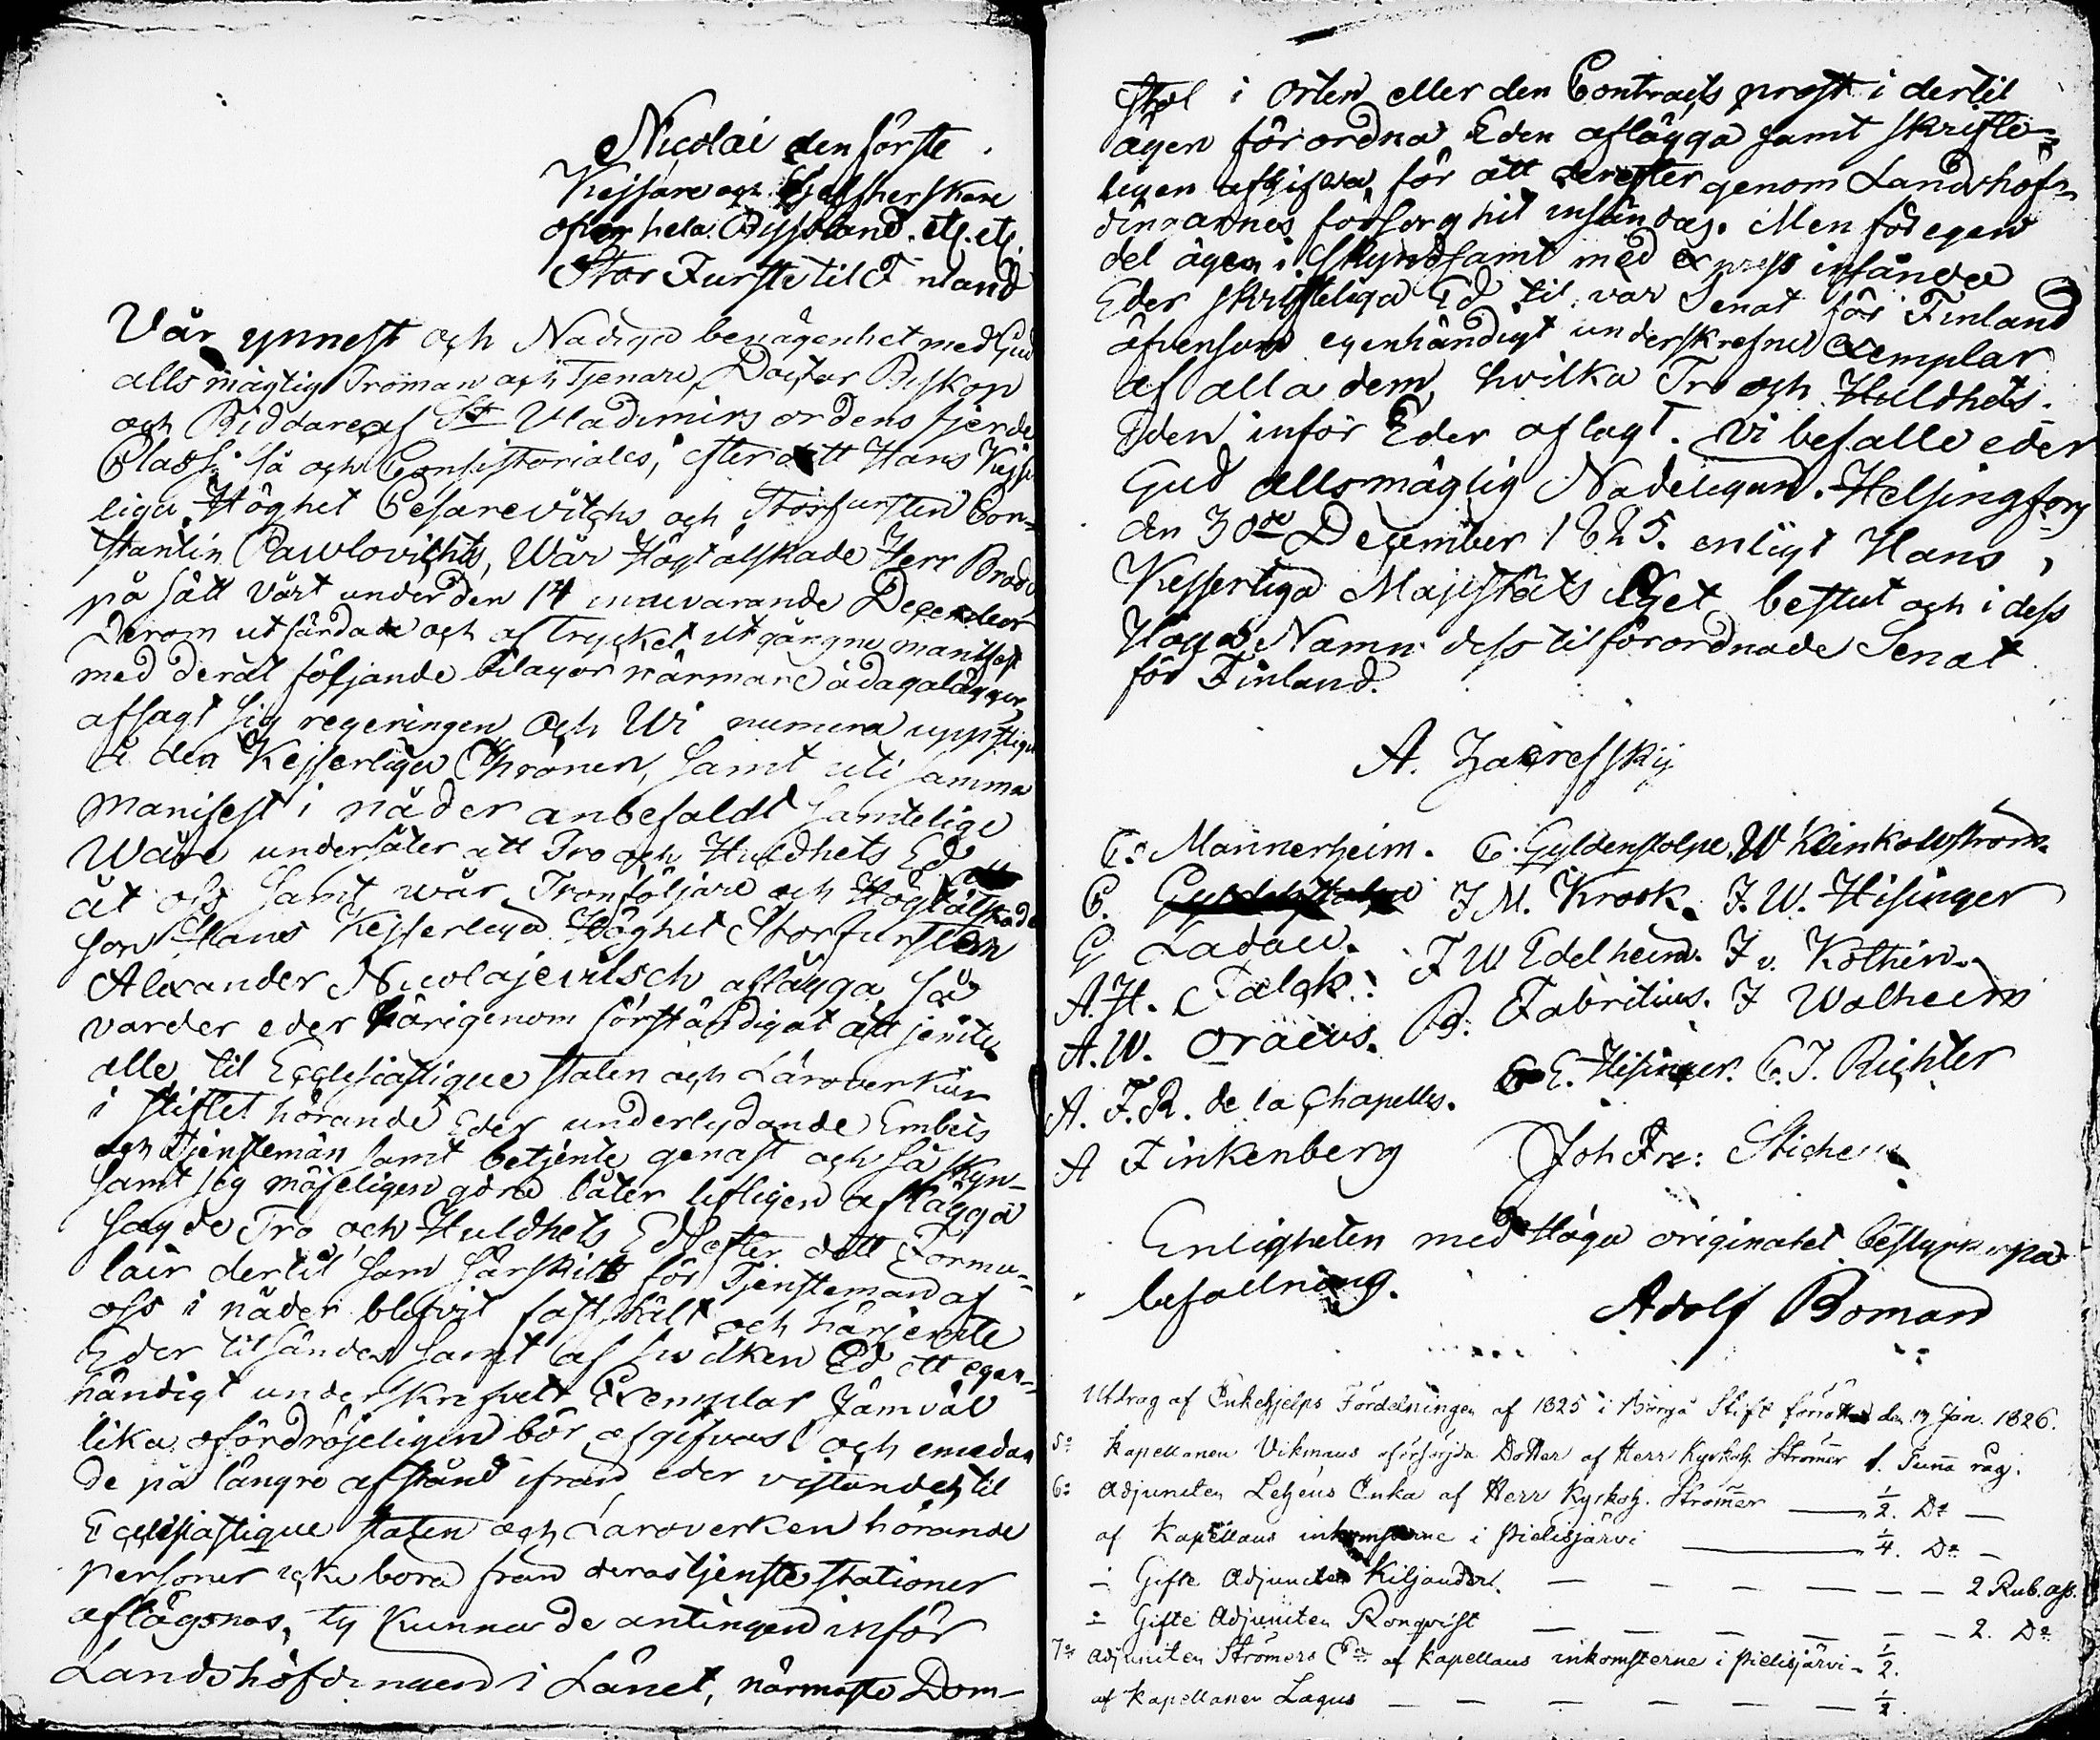 Nicolai den förste
Kejsare och Sjelfherskare
öfver hela Ryssland. etc. etc.
Stor Furste til Finland
Vår ynnest och Nådiga benägenhet med Gud
alls mägtig Troman och Tjenare, Doctor Biskop
och Riddare af St Vladimirs ordens fjerde
Class: så och Consistoriales, efter att Hans Kejser
liga Höghet Cesarevitchs och Storfursten Con-
stantin Pawlovichts, Wår Högtälskade Herr Broder
på sätt vårt under den 14 innevarande December
derom utfärdade och af trycket utgångne manifest
med deråt följande bilagor närmare ådagalägger,
afsagt sig regeringen och Wi numera uppstigit
å den Kejserliga Thronen, samt uti samma
manifest i nåder anbefaldt samtelige
Wåre undersåter att Tro och Huldhets Ed
åt oss samt wår Tronföljare och Högtälskade
son Hans Kejserliga Höghet Storfursten
Alexander Nicolajevitsch aflägga, så
varder eder härigenom förståndigat att jemte
alle til Ecclesiastique staten och Läroverken
i stiftet hörande Eder underlydande Embets
och Tjenstemän samt betjente genast och så skyn-
samt sig möjeligen göra låter lifligen aflägga
sagde Tro och Huldhets Ed efter dett Formu-
lair dertil som särskilt för Tjensteman af
oss i nåder blifvit fastställt och härjemte
Eder tilsändes samt af hvilken Ed ett egen-
händigt underskrifvett Exemplar jämväl
lika ofördröjeligen bör afgifvas och emedan
de på längre afstånd ifrån eder vistandes til
Ecclesiastique staten och Läroverken hörande
personer icke bora från deras tjenste stationer
aflägsnas, ty kunna de antingen inför
Landshöfdingen i Länet, närmaste Dom-
stol i Orten eller den Contracts prost i dertil
ägen förordna Eden aflägga samt skrifte-
ligen afgifva, för att derefter genom Landshöf-
dingarnes försorg hit insändas. Men för egen
del ägen i skyndsamt med express insända
Eder skrifteliga Ed til vår Senat för Finland
äfvensom egenhändigt underskrefne exemplar
af alla dem, hvilka Tro och Huldhets
Eden inför Eder aflagt. Vi befalle eder
Gud allsmägtig Nådeligen. Helsingfors
den 30de December 1825. enligt Hans
Kejserliga Majestäts Eget beslut och i dess
Höga Namn dess tilförordnade Senat
för Finland.
A. Zakrefsskij
C. Mannerheim. C. Gyldenstolpe. W Klinkowström.
C. J M. Krook. J. W. Hisinger
G Ladau. J W Edelheim. J v. Kothen.
A. H. Falck. B. Fabritius. J Walheim
A. W. Oraeus. E. Hisinger. C. J. Richter
A. F. R. de la Chapelle.
A Finkenberg Joh Fre: Stichæus
Enligheten med Höga originalet bestyrker på
befallning.
Adolf Boman
Utdrag af Enkehjelps Fördelningen af 1825 i Borgå Stift förrättad den 19 Jan. 1826.
5o Kapellanen Vikmans oförsörjda Dotter af Herr Kyrkoh. Strömer 1. Tunna råg.
6o Adjuncten Letzeus Enka af Herr Kyrkoh. Strömer — 1/2. Do —
af Kapellans inkomsterne i Pielisjärvi — 1/4. Do —
— Gifte Adjuncten Kiljander — — — — — 2 Rub. ass.
— Gifte Adjuncten Ronqvist — — — — — — 2. Do
7o Adjuncten Strömers Ea af Kapellans inkomsterne i Pielisjärvi — 1/2.
af Kapellanen Lagus — — — — — — 1/2.